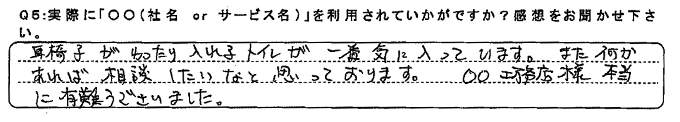 Q5:実際に「〇〇(社名 or サービス名)」を利用されていかがですか?感想をお聞かせ下さ
い。
車椅子が ゆったり入れる トイレが 一番気に入っています。また何か
あれば 相談したいなと 思っております。 〇〇工務店様 本当
に有難うございました。